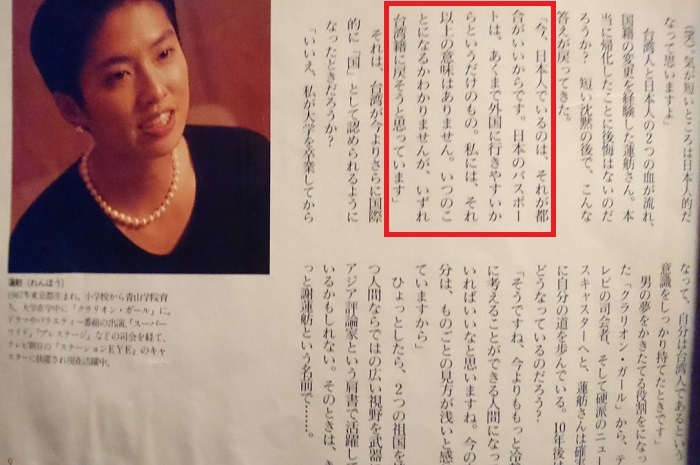 （笑）気が短いところは日本人的だ
なって思いますよ」
台湾人と日本人の2つの血が流れ、
国籍の変更を経験した蓮舫さん。本
当に帰化したことに後悔はないのだ
ろうか？　短い沈黙の後で、こんな
答えが戻ってきた。
「今、日本人でいるのは、それが都
合がいいからです。日本のパスポー
トは、あくまで外国に行きやすいか
らというだけのもの。私には、それ
以上の意味はありません。いつのこ
とになるかわかりませんが、いずれ
台湾籍に戻そうと思っています」
それは、台湾が今よりさらに国際
的に「国」として認められるように
なったときだろうか？
「いいえ、私が大学を卒業してから
なって、自分は台湾人であるという
意識をしっかり持てたときです」
男の夢をかきたてる役割をになっ
た「クラリオン・ガール」から、テ
レビの司会者、そして硬派のニュー
スキャスターへと、蓮舫さんは確実
に自分の道を歩んでいる。10年後は
どうなっているのだろう？
「そうですね、今よりももっと冷
に考えることができる人間になって
いればいいなと思いますね。今の
分は、ものごとの見方が浅いと感
ていますから」
ひょっとしたら、2つの祖国を
つ人間ならではの広い視野を武器
アジア評論家という肩書で活躍して
いるかもしれない。そのときは、き
っと謝蓮舫という名前で……。
蓮舫（れんほう）
1967年東京都生まれ。小学校から青山学院育
ち。大学在学中に「クラリオン・ガール」に。
ドラマやバラエティー番組の出演、「スーパー
ワイド」「プレステージ」などの司会を経て、
テレビ朝日の「ステーションEYE」のキャ
スターに抜擢され現在活躍中。